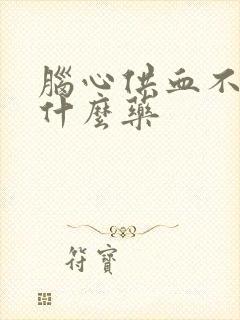 腦心供血不
什麼藥
符寶